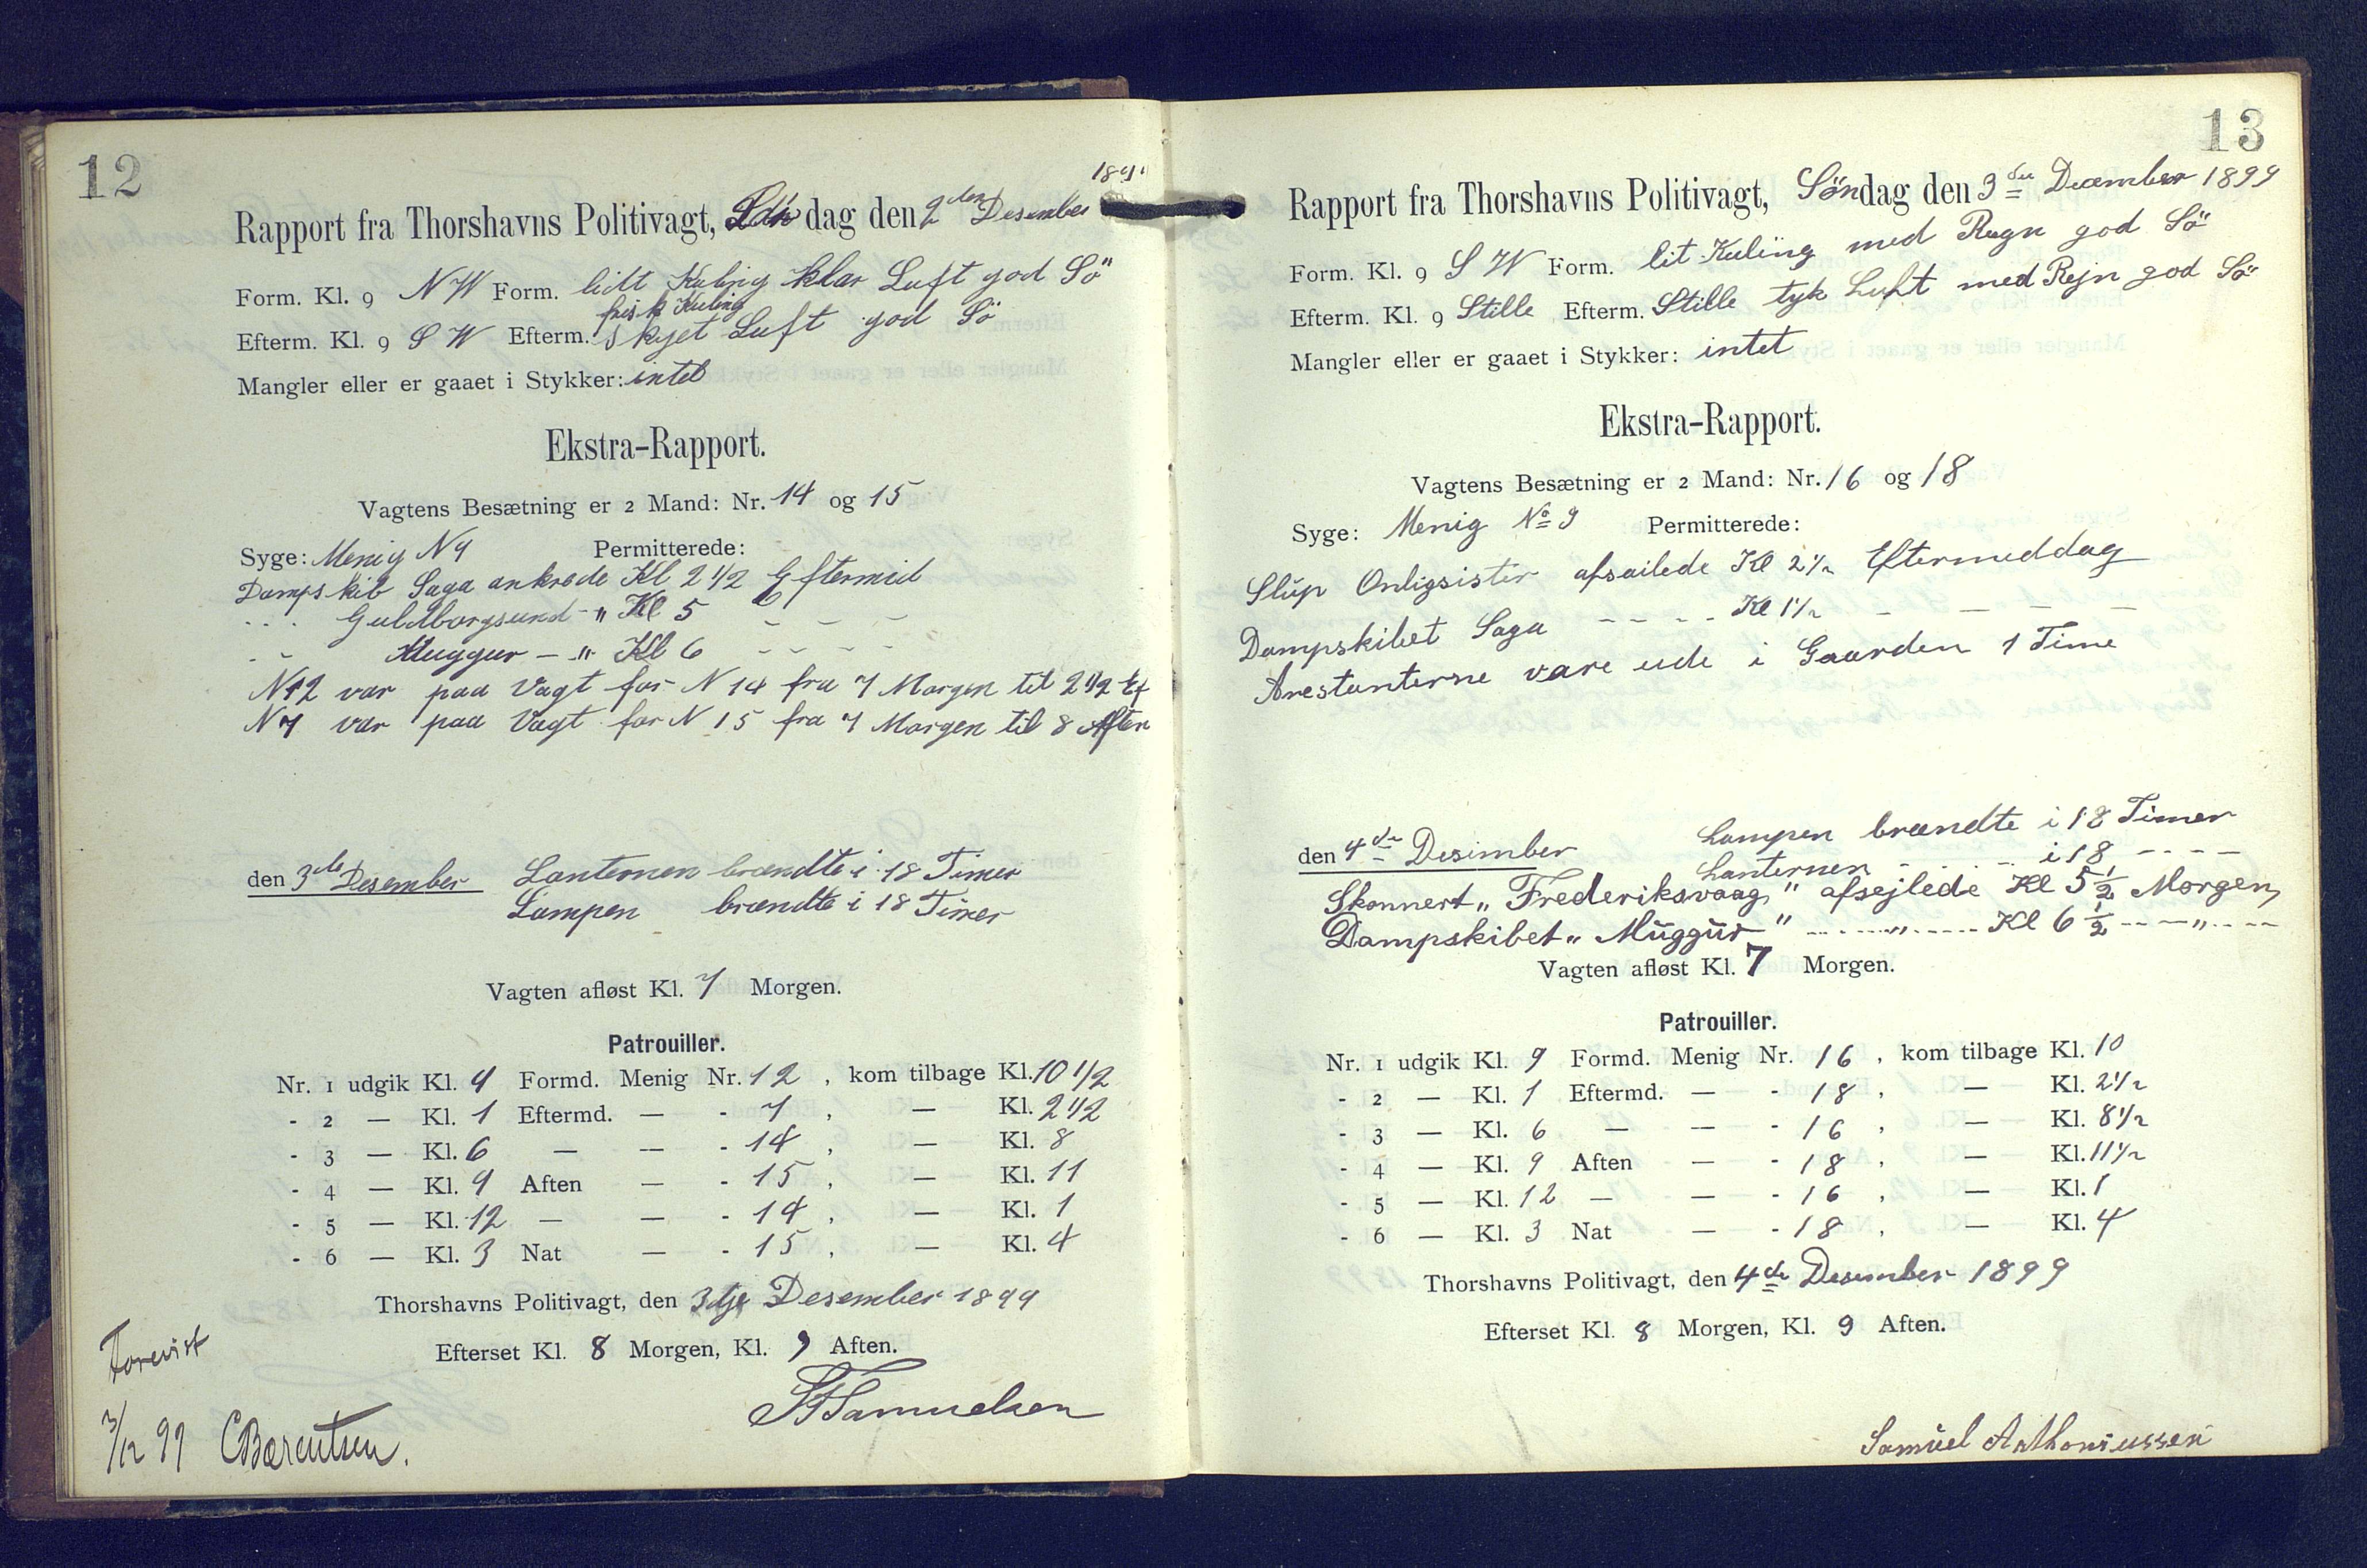 12
1899
Rapport fra Thorshavns Politivagt, Lör dag den 2den Desember
Form. Kl. 9 NW Form. lidt Kuling klar Luft god Sö
frisk Kuling
Efterm. Kl. 9 SW Efterm. Skyet Luft god Sö
Mangler eller er gaaet i Stykker: intet
Ekstra-Rapport.
Vagtens Besætning er 2 Mand: Nr. 14 og 15
Syge: Menig N 9 Permitterede:
Dampskib Saga ankrede Kl 2 1/2 Eftermid
- - - Guldborgsund - " Kl 5 - - -
- - Muggur - " - Kl 6 - - - -
N 12 var paa Vagt for N 14 fra 7 Morgen til 2 1/2 Ef
N 7 var paa Vagt for N 15 fra 7 Morgen til 8 Aften
den 3de Desember Lanternen brændte i 18 Timer
Lampen brændte i 18 Timer
Vagten afløst Kl. 7 Morgen.
Patrouiller.
Nr. 1 udgik Kl. 9 Formd. Menig Nr. 12, kom tilbage Kl. 10 1/2
- 2 — Kl. 1 Eftermd. — - 7, — Kl. 2 1/2
- 3 — Kl. 6 — — - 14, — Kl. 8
- 4 — Kl. 9 Aften — - 15, — Kl. 11
- 5 — Kl. 12 — — - 14, — Kl. 1
- 6 — Kl. 3 Nat — - 15, — Kl. 4
Thorshavns Politivagt, den 3dje Desember 1899
Efterset Kl. 8 Morgen, Kl. 9 Aften.
Samuelsen
Forevist
3/12 99 CBærentsen.
13
Rapport fra Thorshavns Politivagt, Söndag den 3die December 1899
Form. Kl. 9 SW Form. lit Kuling med Regn god Sö
Efterm. Kl. 9 Stille Efterm. Stille tyk Luft med Rejn god Sö
Mangler eller er gaaet i Stykker: intet
Ekstra-Rapport.
Vagtens Besætning er 2 Mand: Nr. 16 og 18
Syge: Menig No 9 Permitterede:
Slup Onligsister afsailede Kl 2 1/2 Eftermeddag
Dampskibet Saga - - - - Kl 1 1/2 - - - -
Arestanterne vare ude i Gaarden 1 Time
den 4de Desimber Lampen brændte i 18 Timer
Lanternen - - - - i 18 - - - -
Skonnert „Frederiksvaag" afsejlede Kl 5 1/2 Morgen,
Dampskibet „Muggur" - - - " - - - Kl 6 1/2 - - " - -
Vagten afløst Kl. 7 Morgen.
Patrouiller.
Nr. 1 udgik Kl. 9 Formd. Menig Nr. 16, kom tilbage Kl. 10
- 2 — Kl. 1 Eftermd. — - 18, — Kl. 2 1/2
- 3 — Kl. 6 — — - 16, — Kl. 8 1/2
- 4 — Kl. 9 Aften — - 18, — Kl. 11 1/2
- 5 — Kl. 12 — — - 16, — Kl. 1
- 6 — Kl. 3 Nat — - 18, — Kl. 4
Thorshavns Politivagt, den 4de Desember 1899
Efterset Kl. 8 Morgen, Kl. 9 Aften.
Samuel Anthoniussen